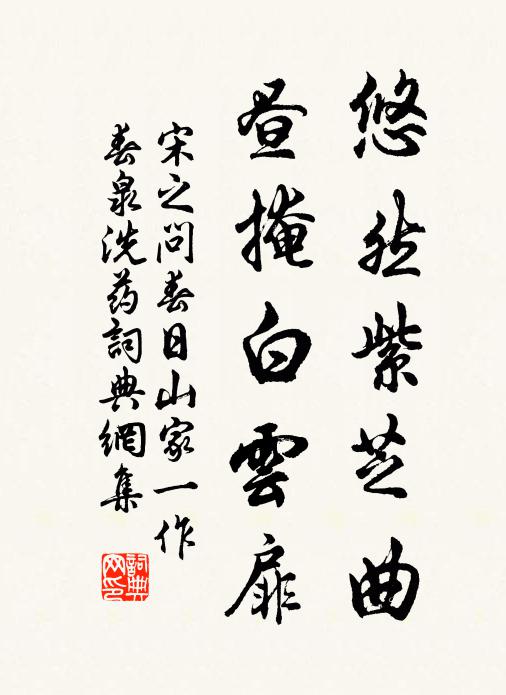 悠然紫芝曲
昼掩白雲扉
宋之问春日山家一作
春泉洗药詞典網集
詞典网印